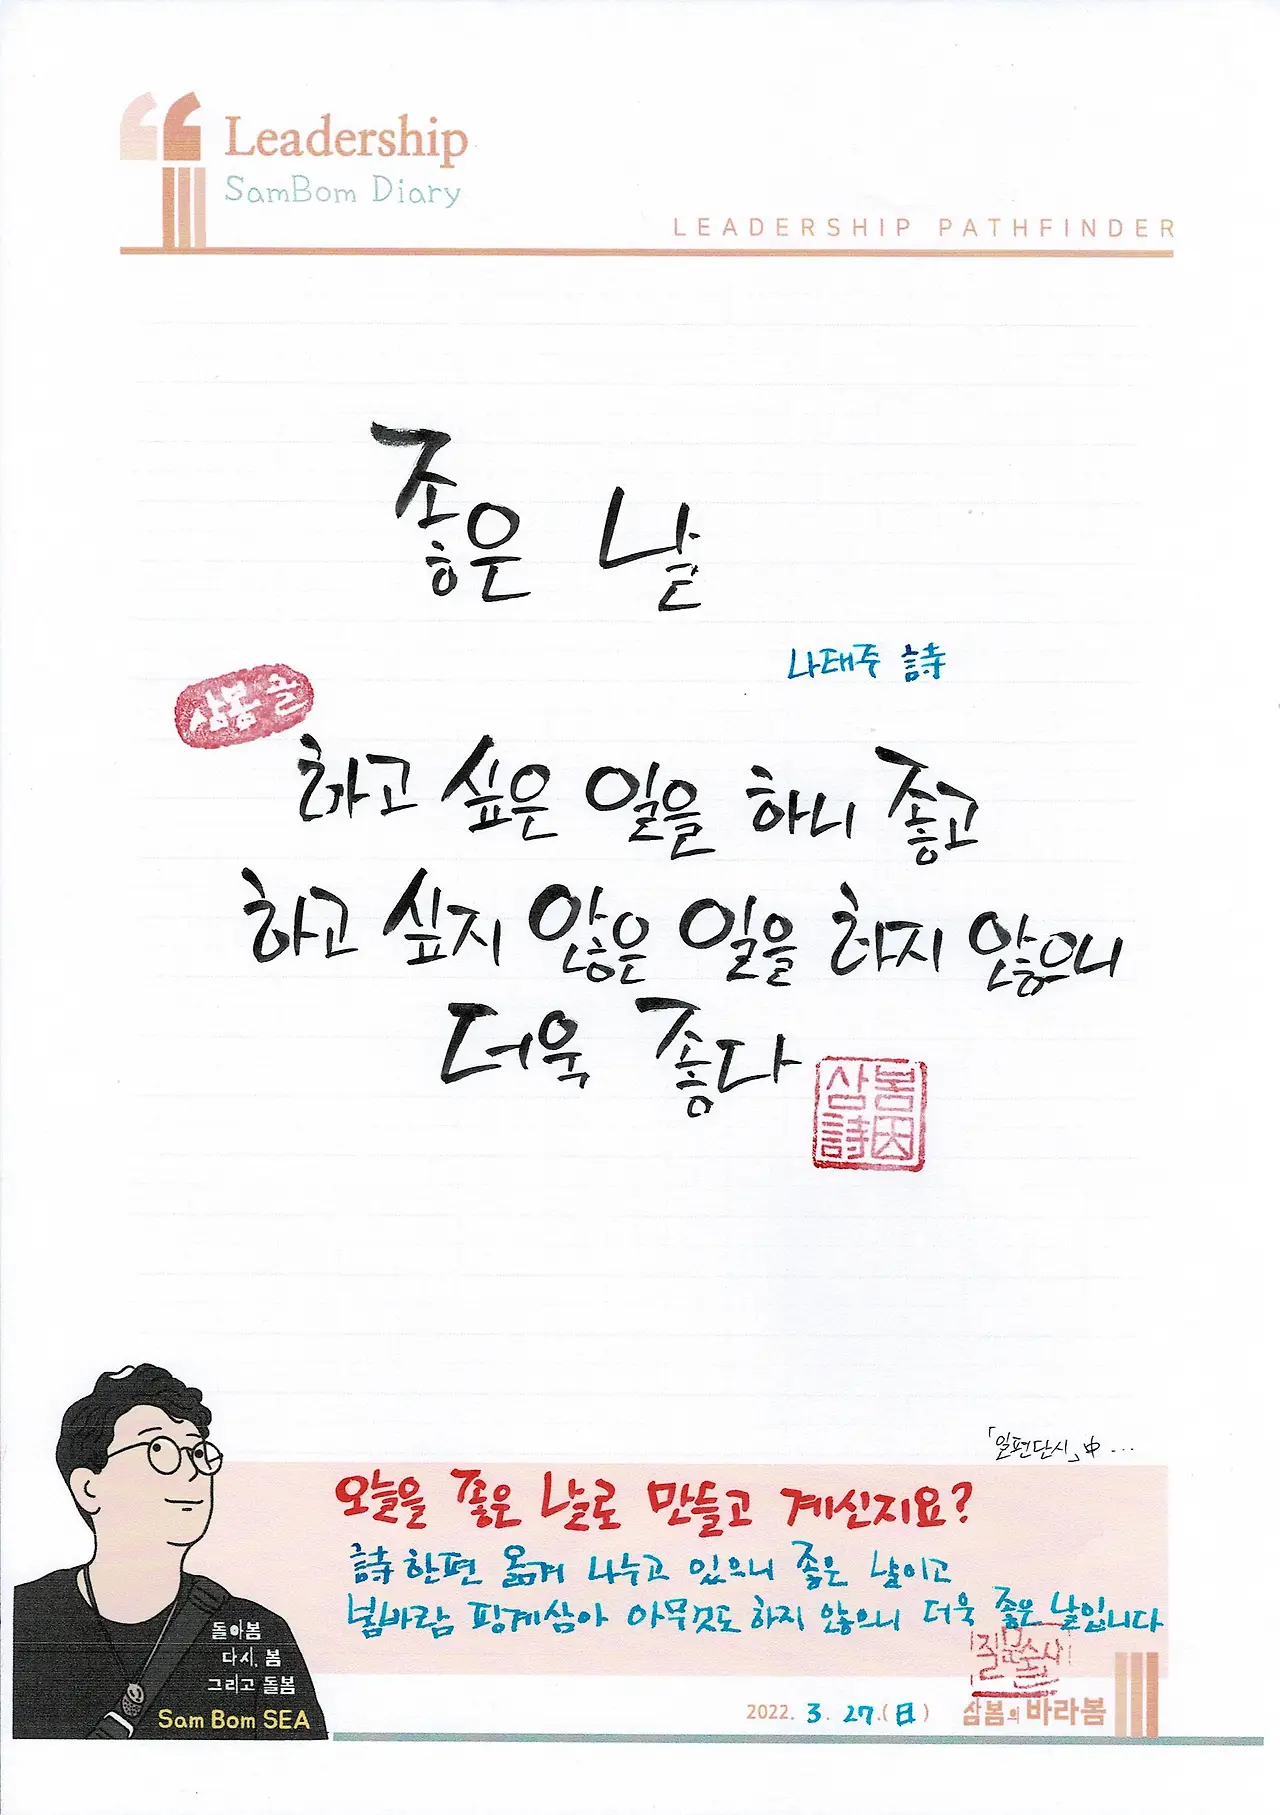 Leadership
SamBom Diary
LEADERSHIP PATHFINDER
좋은 날
나태주 詩
삼봄 글
하고 싶은 일을 하니 좋고
하고 싶지 않은 일을 하지 않으니
더욱 좋다
삼봄
詩
「일편단시」中...
오늘을 좋은 날로 만들고 계신지요?
詩 한편 옮겨 나누고 있으니 좋은 날이고
봄바람 핑계삼아 아무것도 하지 않으니 더욱 좋은 날입니다
돌아봄
다시, 봄
그리고 돌봄
Sam Bom SEA
질문술사
2022. 3. 27.(日)
삼봄의 바라봄